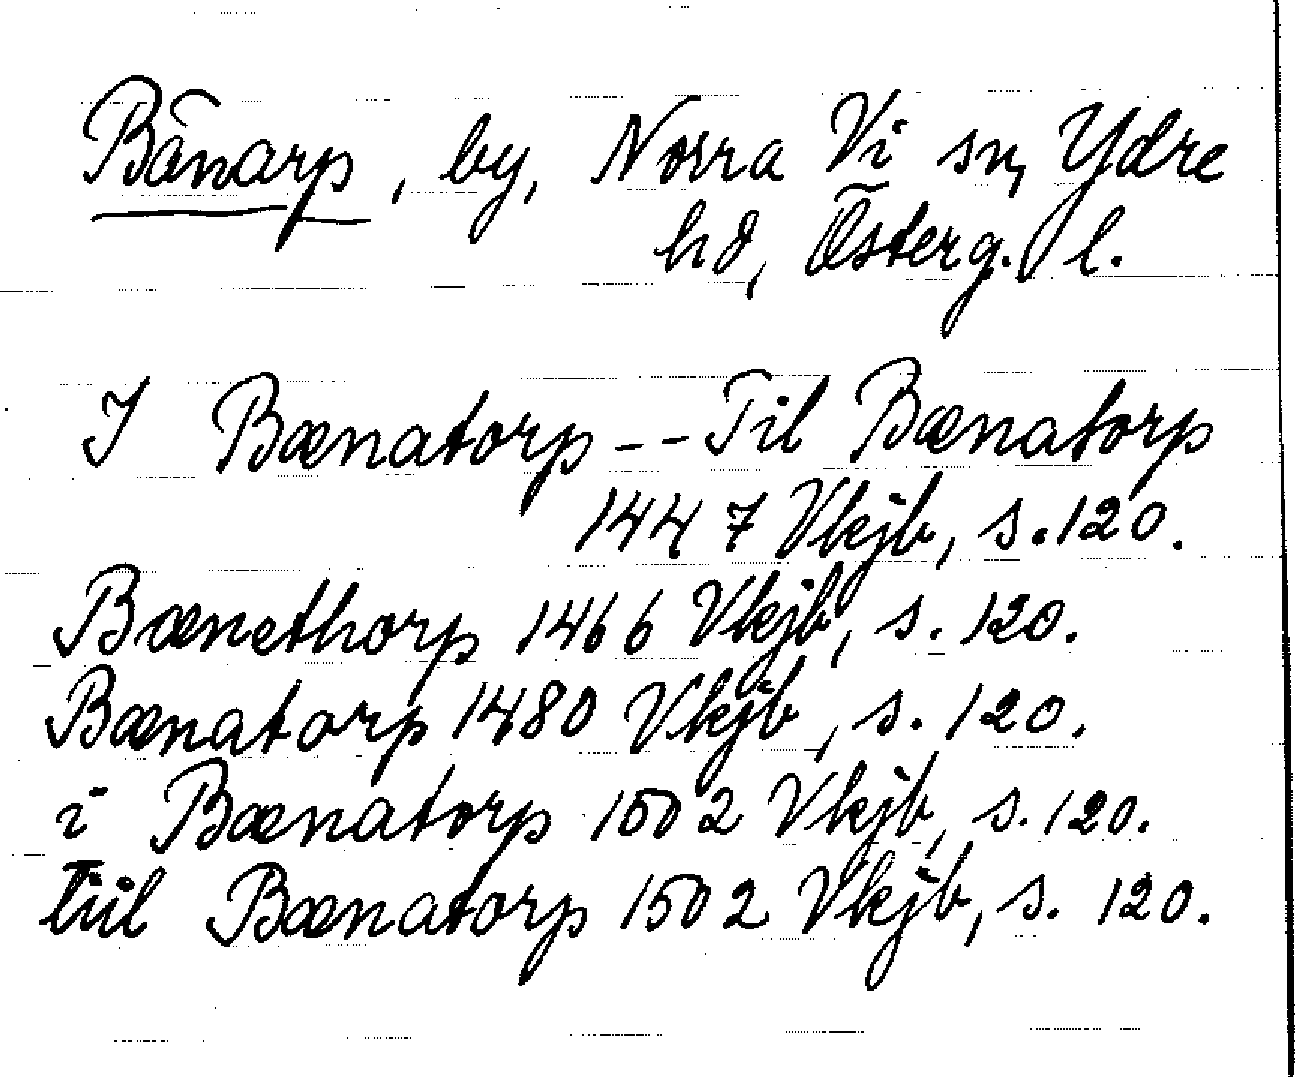 Bänarp, by, Norra Vi sn, Ydre
hd, Österg. l.
I Bænatorp -- Til Bænatorp
1447 Vkjb, s. 120.
Bænethorp 1466 Vkjb, s. 120.
Bænatorp 1480 Vkjb, s. 120.
i Bænatorp 1502 Vkjb, s. 120.
tiil Bænatorp 1502 Vkjb, s. 120.